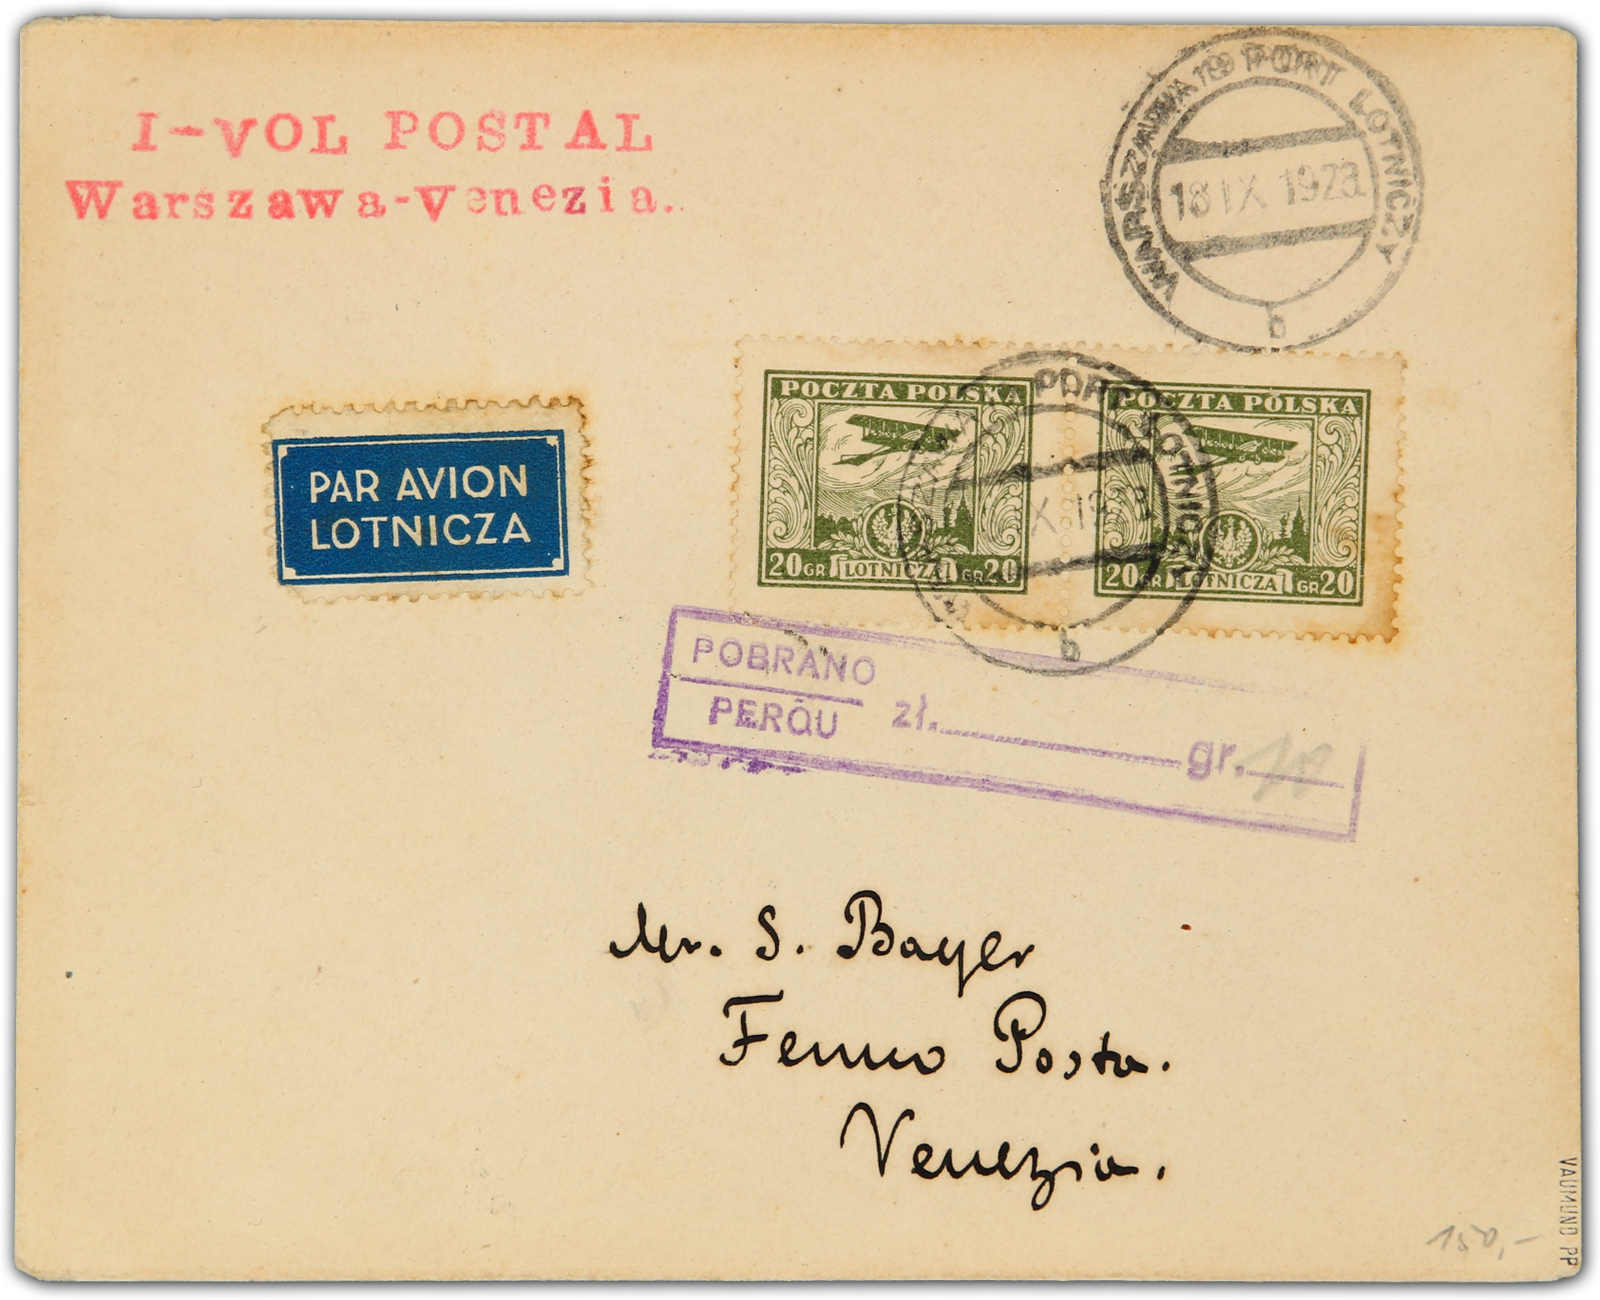 I-VOL POSTAL
Warszawa-Venezia.
WARSZAWA 19 PORT LOTNICZY
18 IX 1928
b
PAR AVION
LOTNICZA
POCZTA POLSKA
20 GR LOTNICZA GR 20
POCZTA POLSKA
20 GR LOTNICZA GR 20
PORT LOTNICZY
X 192
b
POBRANO
PERÇU
zł. gr.
Mr. S. Bayer
Fermo Posta.
Venezia.
150,-
VAUMUND PP